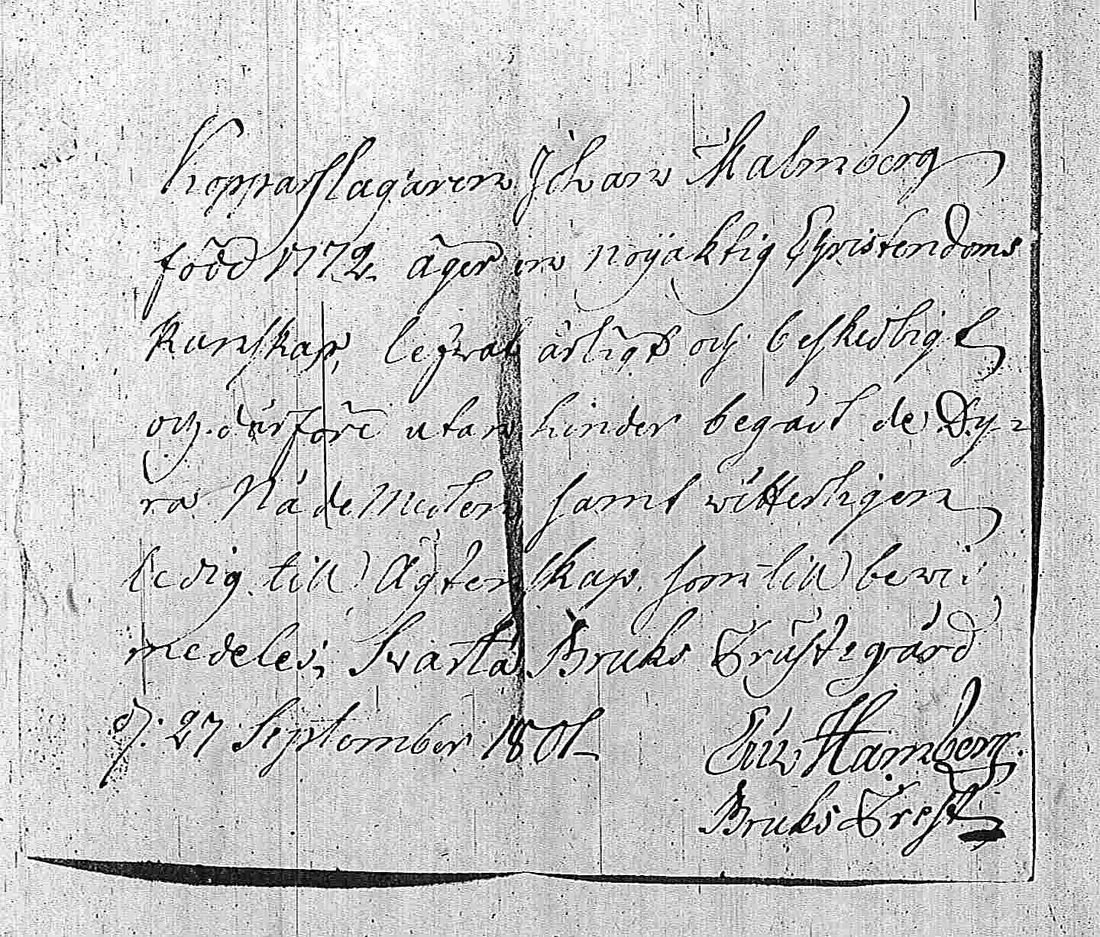 Kopparslagaren Johan Malmberg
född 1772 äger en nöyaktig Christendoms
Kunskap, lefwat ärligt och beskedligt
och därföre utan hinder begådt de Dy-
ra Nådemedlen samt witterligen
ledig till Ägtenskap, som till bewis
meddeles; Svartå Bruks Prästegård
d. 27 September 1801
Eric Hamberg.
Bruks Prest